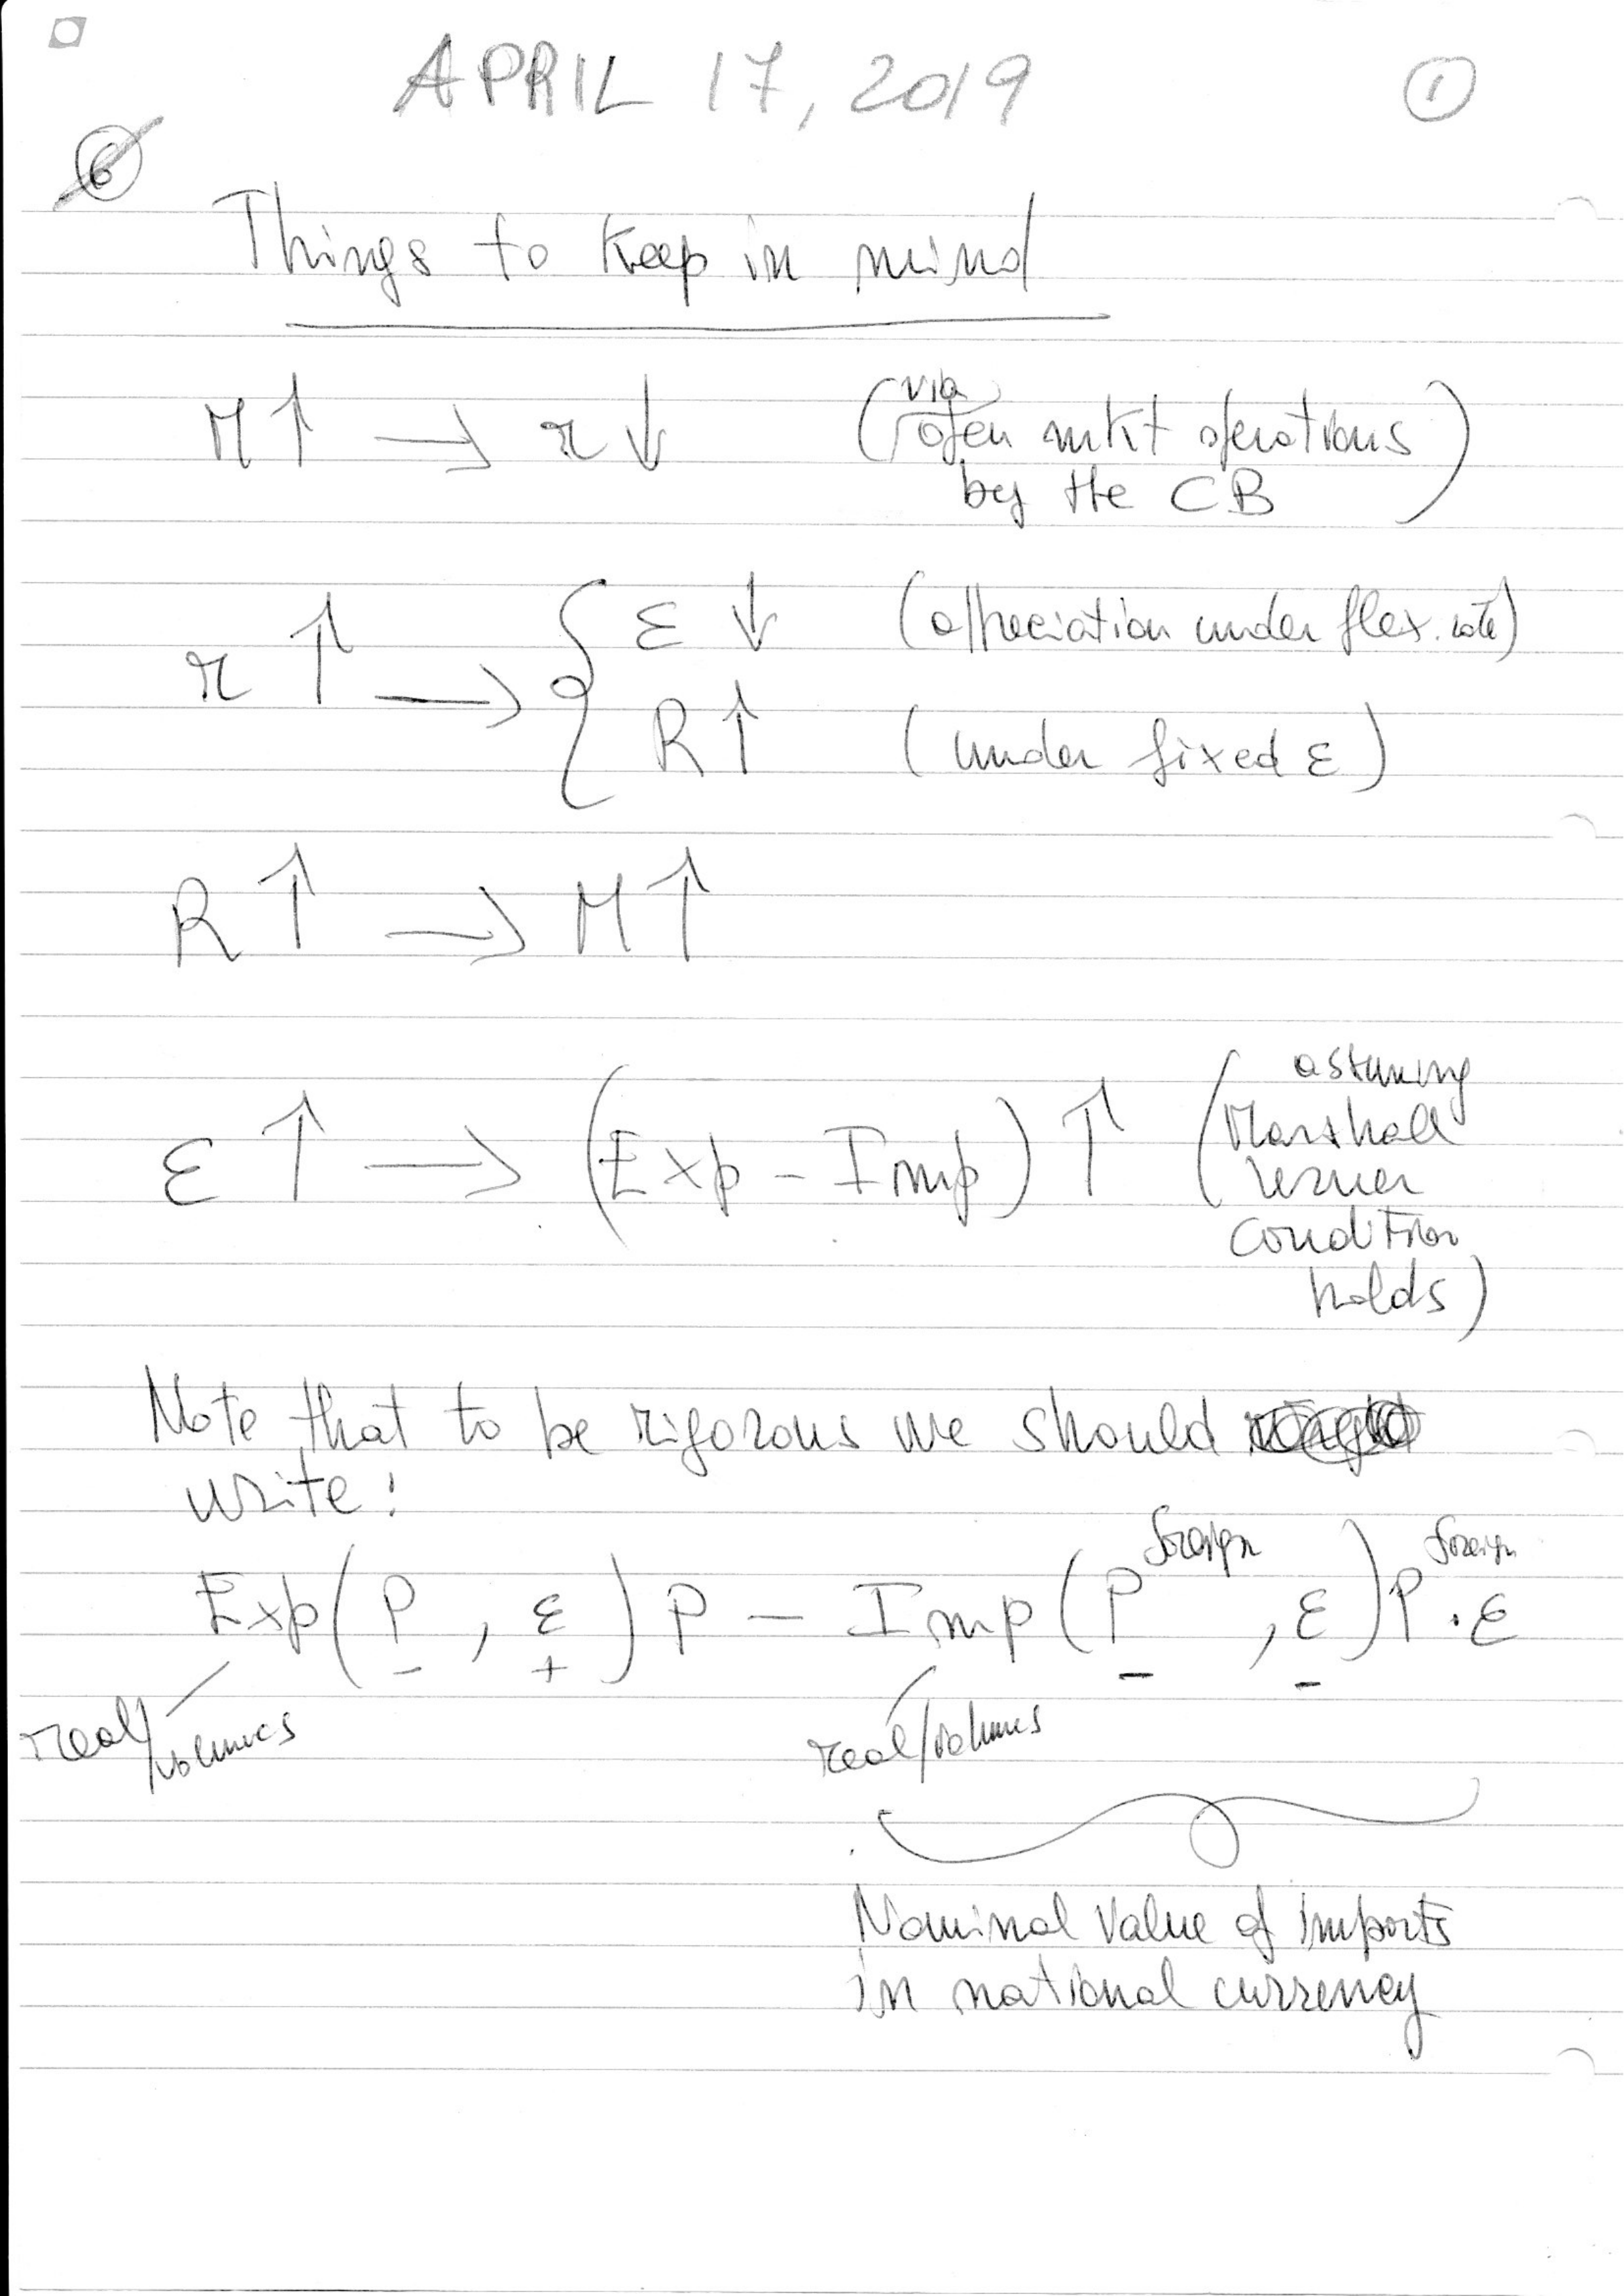 APRIL 17, 2019
1
6
Things to keep in mind
M ↑ → r ↓ (via open mkt operations
by the CB)
r ↑ → { ε ↓ (appreciation under flex. rate)
R ↑ (under fixed ε)
R ↑ → M ↑
ε ↑ → (Exp - Imp) ↑ (assuming
Marshall
Lerner
condition
holds)
Note that to be rigorous we should
write:
Exp(P, ε) P - Imp(P foreign, ε) P foreign · ε
- + - -
real/volumes real/volumes
Nominal Value of imports
in national currency